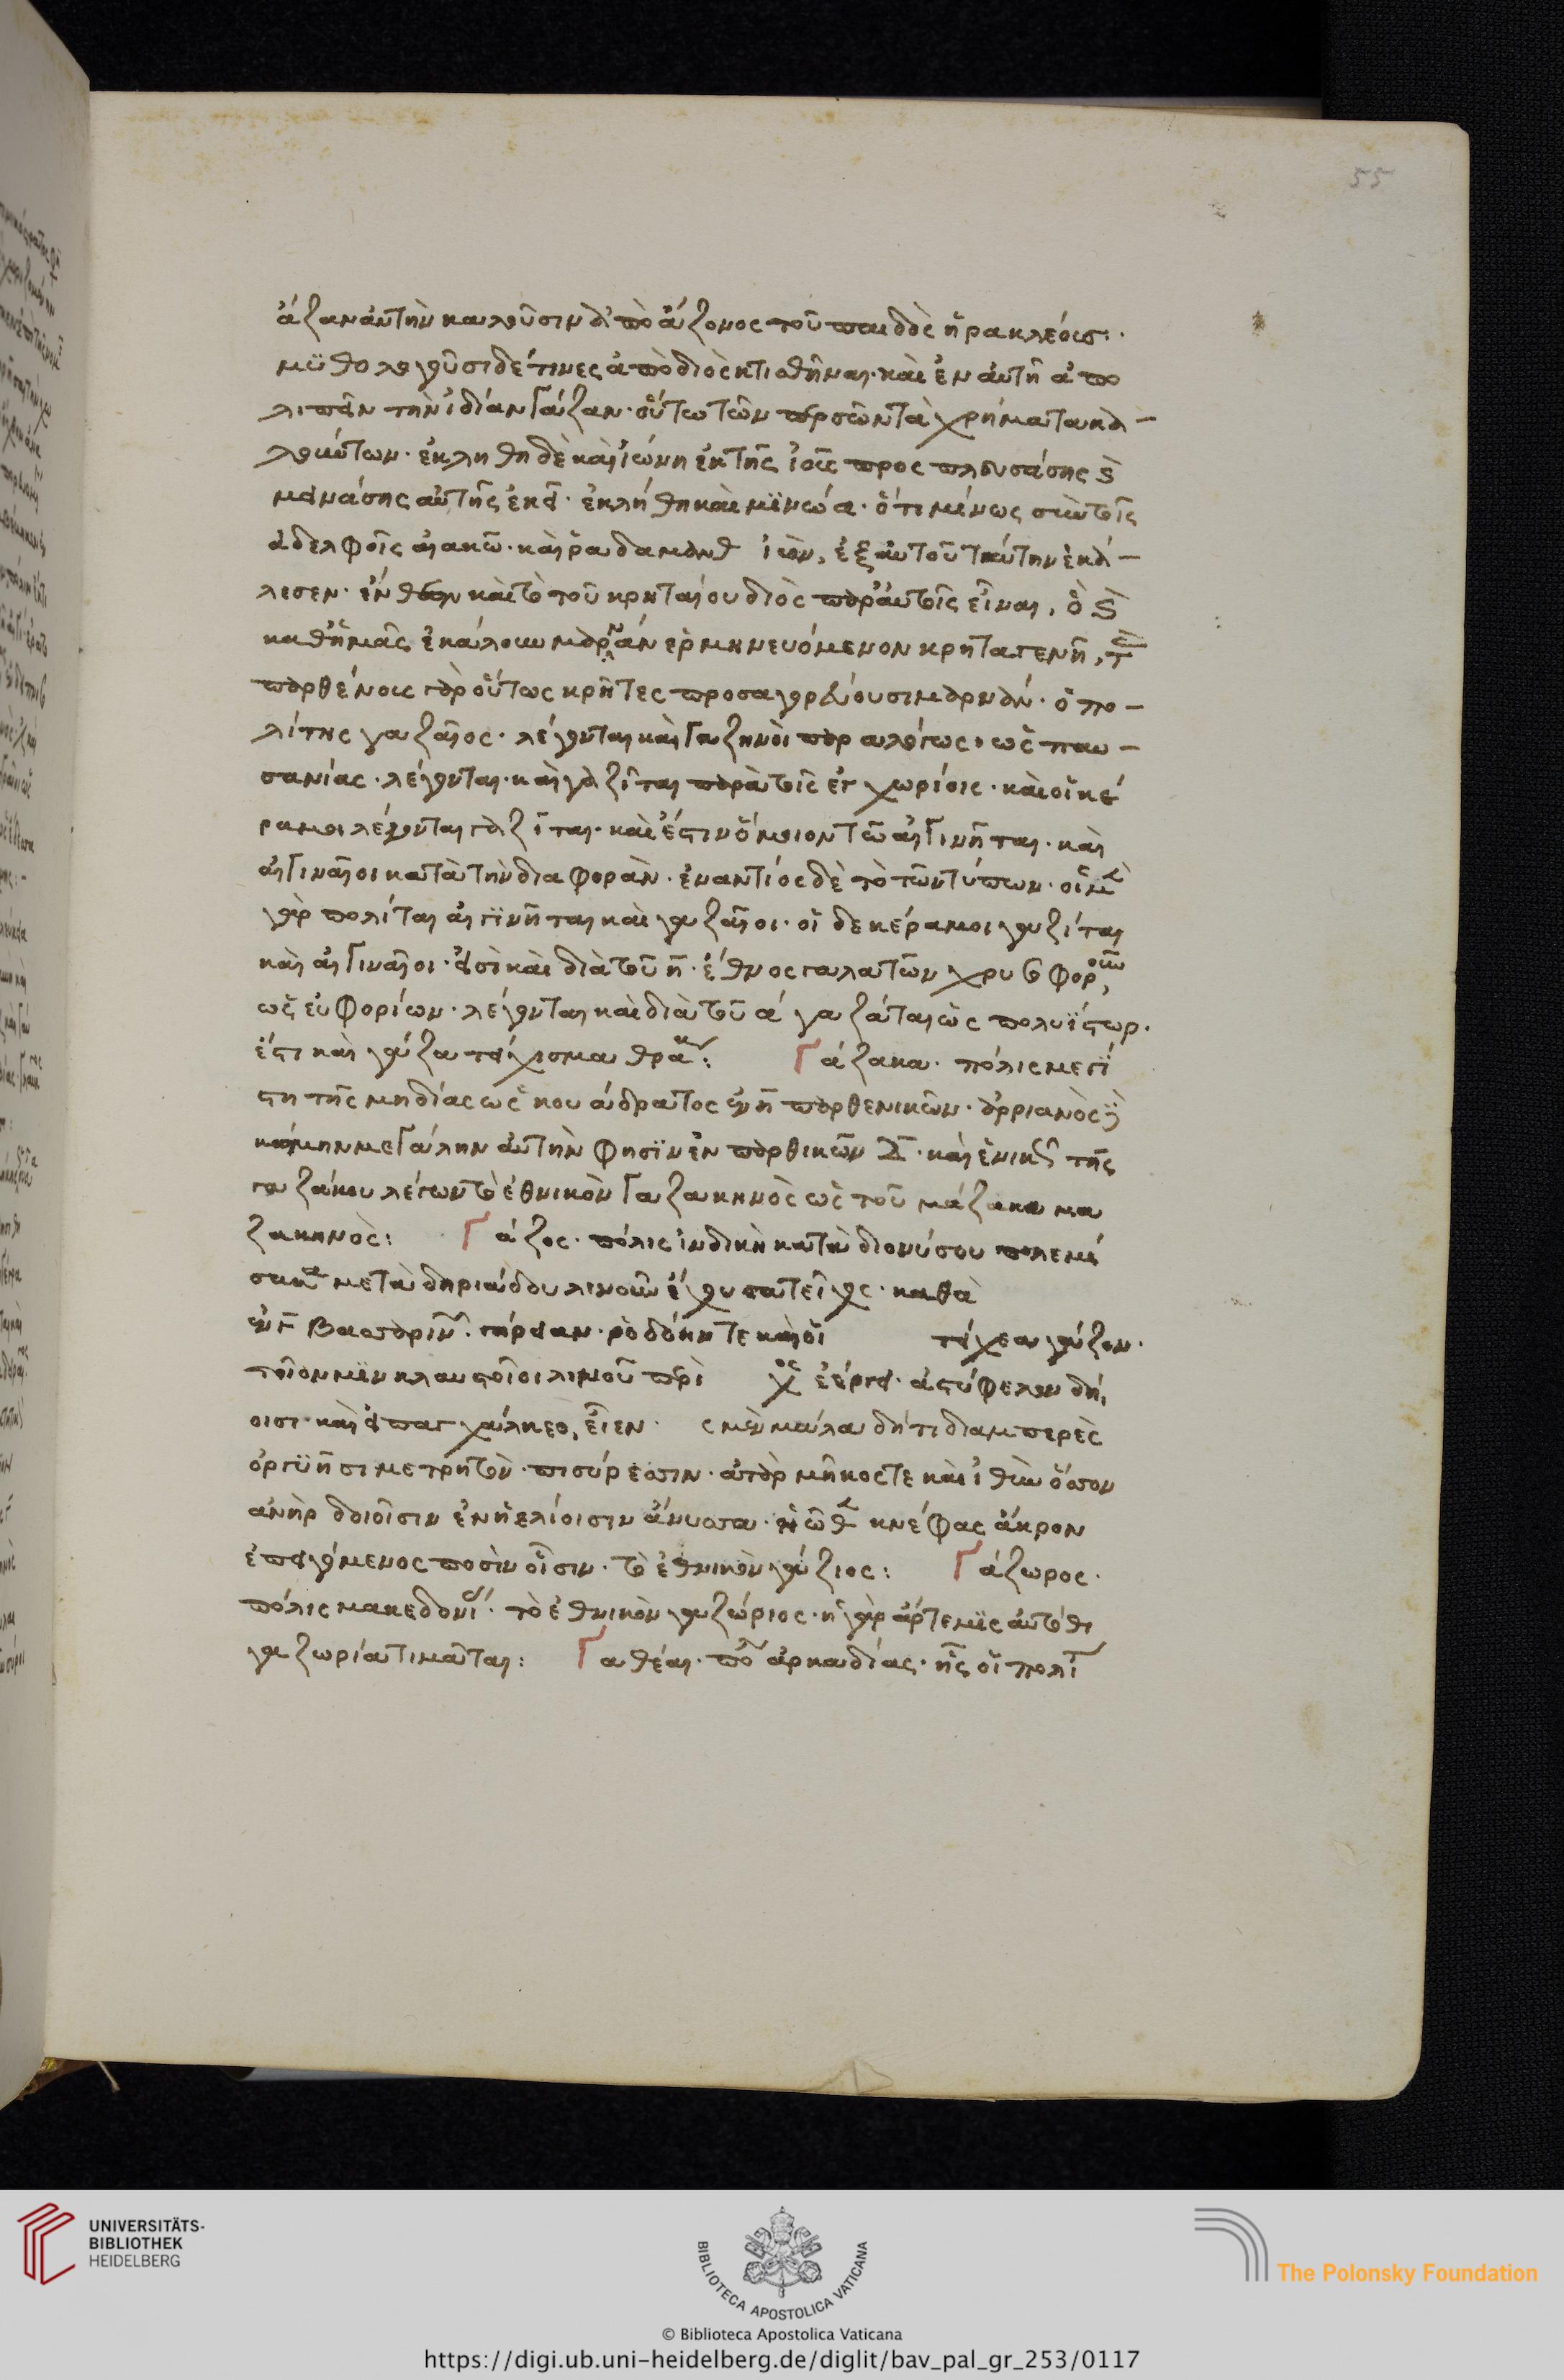 55
άζαν αὐτὴν καλοῦσιν ἀπὸ ἄζονος τοῦ παιδὸς ἡρακλέους·
μϋθολογοῦσι δέ τινες ἀπὸ διὸς κτισθῆναι· καὶ ἐν αὐτῆ ἀπο
λιπεῖν τὴν ἰδίαν Γάζαν· οὕτω τῶν περσῶν τὰ χρήματα κα-
λούντων· ἐκλήθη δὲ καὶ ἰώνη ἐκ τῆς ἰοῦς προς πλευσάσης
μεινάσης αὐτῆς ἐκεῖ· ἐκλήθη καὶ μϊνώα· ὅτι μίνως σὺν τοῖς
ἀδελφοῖς αἰακῶ· καὶ ῥαδαμανθ ἰὼν, ἐξ αὑτοῦ ταύτην ἐκά-
λεσεν· ἔνθεν καὶ τὸ τοῦ κρηταίου διὸς παρ' αὐτοῖς εἶναι, ὃ
καθ' ἡμᾶς ἐκάλουν μαρνὰν ἑρμηνευόμενον κρηταγενῆ,
παρθένους γὰρ οὕτως κρῆτες προσαγορεύουσι μαρνάν· ὁ πο-
λίτης γαζαῖος· λέγονται καὶ Γαζηνοὶ παραλόγως, ὡς παυ-
σανίας· λέγονται· καὶ γαζῖται παρὰ τοῖς ἐγχωρίοις· καὶ οἱ κέ
ραμοι λέγονται γαζῖται· καὶ ἔστιν ὅμοιον τῶ αἰΓινῆται· καὶ
αἰΓιναῖοι κατὰ τὴν διαφορὰν· ἐναντίος δὲ τὸ τῶν τύπων· οἱ μὲ
γὰρ πολίται αἰγϊνῆται καὶ γαζαῖοι· οἱ δε κέραμοι γαζίται
καὶ αἰΓιναῖοι· εἰσὶ καὶ διὰ τοῦ η· ἔθνος γαλατῶν χρυσοφορ
ὡς εὐφορίων· λέγονται καὶ διὰ τοῦ α γαζάται ὡς πολυΐστωρ·
ἔστι καὶ γάζα τείχισμα θρακ: Γάζακα· πόλις μεγί
στη τῆς μηδίας ὡς κουάδρατος ἐν η παρθενικῶν· ἀρριανὸς
κώμην μεΓάλην αὐτὴν φησϊν ἐν παρθικῶν δ· καὶ ἑνικ τῆς
γαζάκου λέγων τὸ ἐθνικὸν Γαζακηνὸς ὡς τοῦ μάζακα μα
ζακηνὸς: Γάζος· πόλις ἰνδικὴ κατὰ διονύσου πολεμί
σασα μετὰ δηριάδου λινοῦν ἔχουσα τεῖχος· καθὰ
ἐν γ βασσαρικ· γήρειαν· ῥοδόην τε καὶ οἳ τείχεα γάζον·
τοῖον μϊν κλωστοῖο λίνου περὶ χ ἐέργει· ἀστύφελον δη,
οισι καὶ εἰ παγχάλκεο, εἶεν· ς μὲν μάλα δή τι διαμπερὲς
ὀργϋῆσι μετρητὸν· πισύρεσσιν· ἀτὰρ μῆκος τε καὶ ἰθὺν ὅσσον
ἀνὴρ δοιοῖσιν ἐν ἠελίοισιν ἀνυσσα· κνέφας ἄκρον
ἐπειγόμενος ποσὶν οἷσιν· τὸ ἐθνικὸν γάζιος: Γάζωρος·
πόλις μακεδονί· τὸ ἐθνικὸν γαζώριος· ἡ γὰρ ἄρτεμϊς αὐτόθι
γαζωρία τιμᾶται: Γαθέαι· πό ἀρκαδίας· ἧς οἱ πολῖ
UNIVERSITÄTS-
BIBLIOTHEK
HEIDELBERG
BIBLIOTECA APOSTOLICA VATICANA
The Polonsky Foundation
© Biblioteca Apostolica Vaticana
https://digi.ub.uni-heidelberg.de/diglit/bav_pal_gr_253/0117